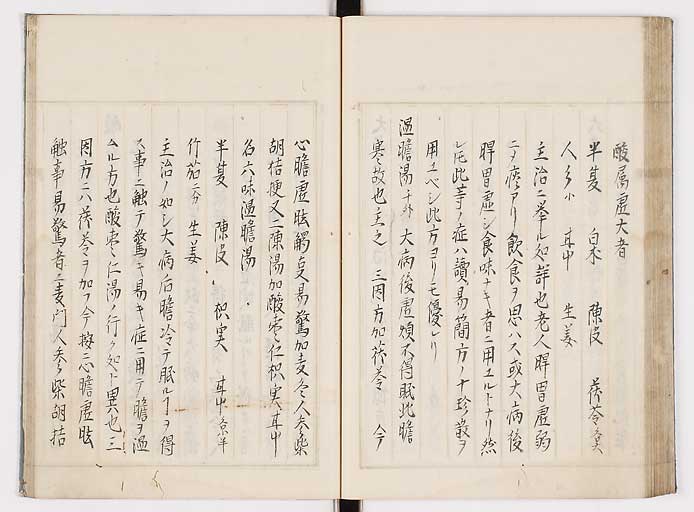 酸属虚大者
半夏 白朮 陳皮 茯苓 各
人参 小 甘中 生姜
主治ニ挙ル如詳也老人脾胃虚弱
ニヲ痞アリ飲食ヲ思ハス或大病後
脾胃虚シ食味ナキ者ニ用ユルトナリ然
レ𪜈此等ノ症ハ讀易簡方ノ十珍散ヲ
用ユベシ此方ヨリモ優レリ
温膽湯 千外 大病後虚煩不得眠此膽
寒故也主之 三因方加茯苓 今
心膽虚眩觸支易驚加麦冬人参柴
胡桔梗又二陳湯加酸棗仁枳実甘中
名六味温膽湯
半夏 陳皮 枳実 甘中
竹茹 生姜
主治ノ如シ大病后膽冷テ眠ルヿヲ得
ス事ニ触テ驚キ易キ症ニ用テ膽ヲ温
ムル方也酸棗仁湯ノ行ク処ト異也三
因方ニハ茯苓ヲ加フ今按心膽虚眩
触事易驚者ニ麦門人参柴胡桔